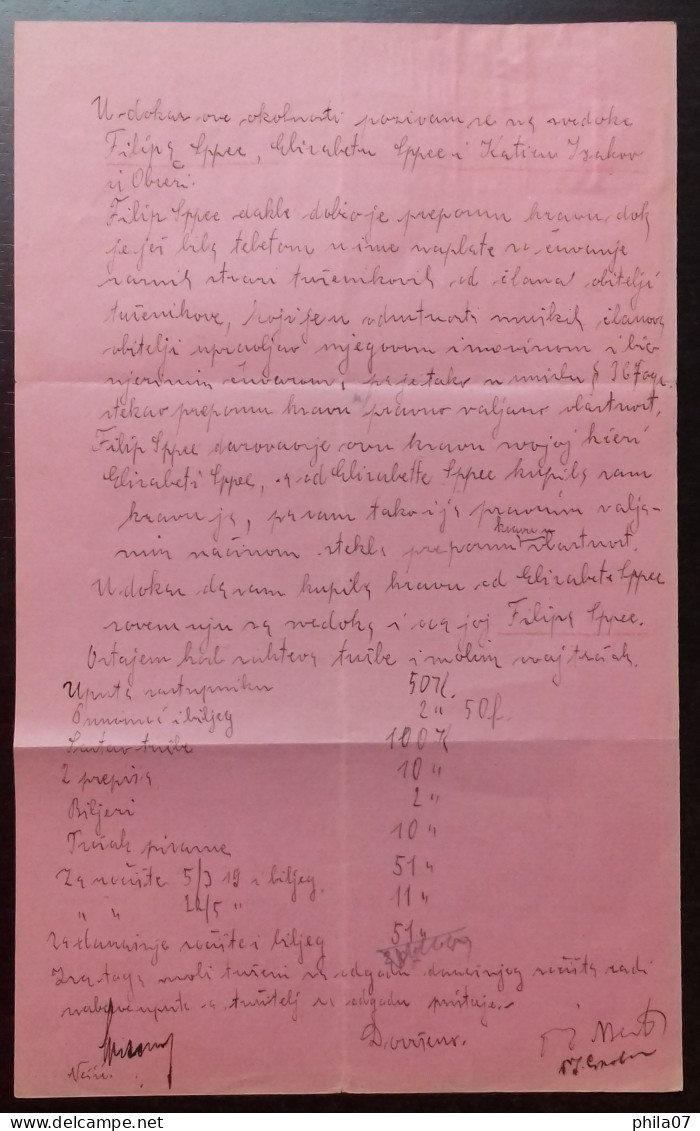 U dokaz ove okolnosti pozivam se na svedoke
Filipa Sppee, Elizabetu Sppee i Katicu Isakov
iz Obreži.
Filip Sppee dakle dobio je prepornu kravu, dok
je još bila teletom u ime naplate za čuvanje
raznih stvari tuženikovih od člana obitelji
tuženikove, koji je u odsutnosti muških članova
obitelji upravljao njegovom imovinom i bio
njezinim čuvarom, pa je tako u smislu § 367 ogz.
stekao prepornu kravu u pravno valjano vlastnost.
Filip Sppee darovao je ovu kravu svojoj kćeri
Elizabeti Sppee, a od Elizabethe Sppee kupila sam
kravu ja, pa sam tako i ja pravnim valja-
nim načinom stekla prepornu kravu u vlastnost.
U dokaz da sam kupila kravu od Elizabete Sppee
zovem nju za svedoka i oca joj Filipa Sppee.
Ostajem kod zahteva tužbe i molim ovaj trošak.
Uputa zastupniku 50 K.
Punomoć i biljeg 2 " 50 f.
Sastav tužbe 100 K
2 prepisa 10 "
Biljezi 2 "
Trošak pisarne 10 "
Za ročište 5/3 19 i biljeg 51 "
" " 22/5 " 11 "
Za današnje ročište i biljeg 51 "
Iza toga moli tuženi za odgodu današnjeg ročišta radi
nabave upute a tužitelj na odgodu pristaje.
Dovršeno.
phila07